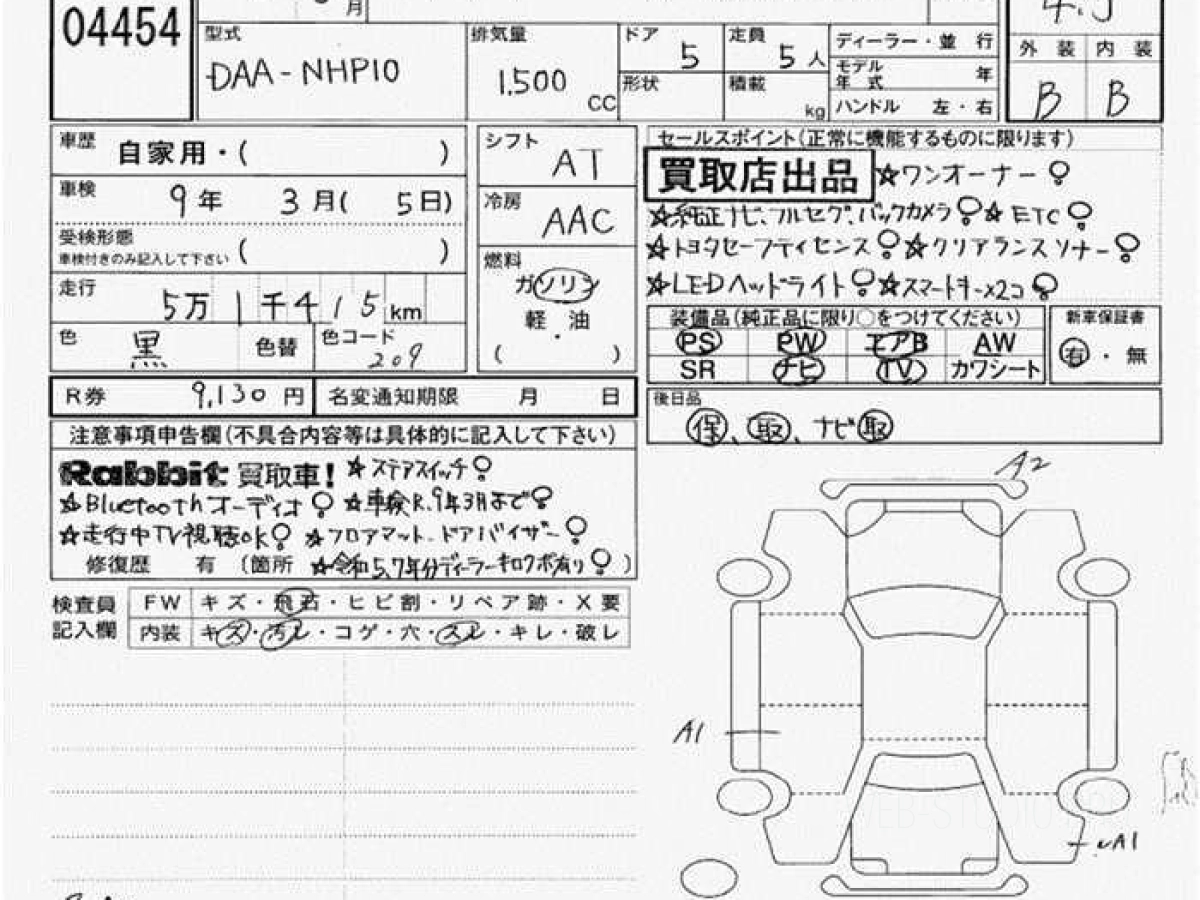 04454
月
4.5
型式
DAA-NHP10
排気量
1,500 CC
ドア 5
定員 5人
ディーラー・並 行
モデル年式 年
形状
積載 kg
ハンドル 左・右
外 装 内 装
B B
車歴 自家用・( )
車検 9年 3月( 5日)
受検形態
車検付きのみ記入して下さい ( )
走行 5万1千415km
色 黒 色替 色コード 209
シフト AT
冷房 AAC
燃料
ガソリン
軽・油
( )
セールスポイント(正常に機能するものに限ります)
買取店出品 ☆ワンオーナー
☆純正ナビ、フルセグ、バックカメラ ☆ETC
☆トヨタセーフティセンス ☆クリアランスソナー
☆LEDヘッドライト ☆スマートキー×2コ
装備品(純正品に限り○をつけてください)
PS PW エアB AW
SR ナビ TV カワシート
新車保証書
有・無
R券 9,130円 名変通知期限 月 日
後日品
保、取、ナビ取
注意事項申告欄(不具合内容等は具体的に記入して下さい)
Rabbit 買取車! ☆ステアスイッチ
☆Bluetoothオーディオ ☆車検R.9年3月まで
☆走行中TV視聴ok ☆フロアマット、ドアバイザー
修復歴 有 (箇所 ☆令和5,7年分ディーラーキロクボ有り )
検査員記入欄
FW キズ・飛石・ヒビ割・リペア跡・X要
内装 キズ・汚レ・コゲ・穴・スレ・キレ・破レ
A2
A1
A1